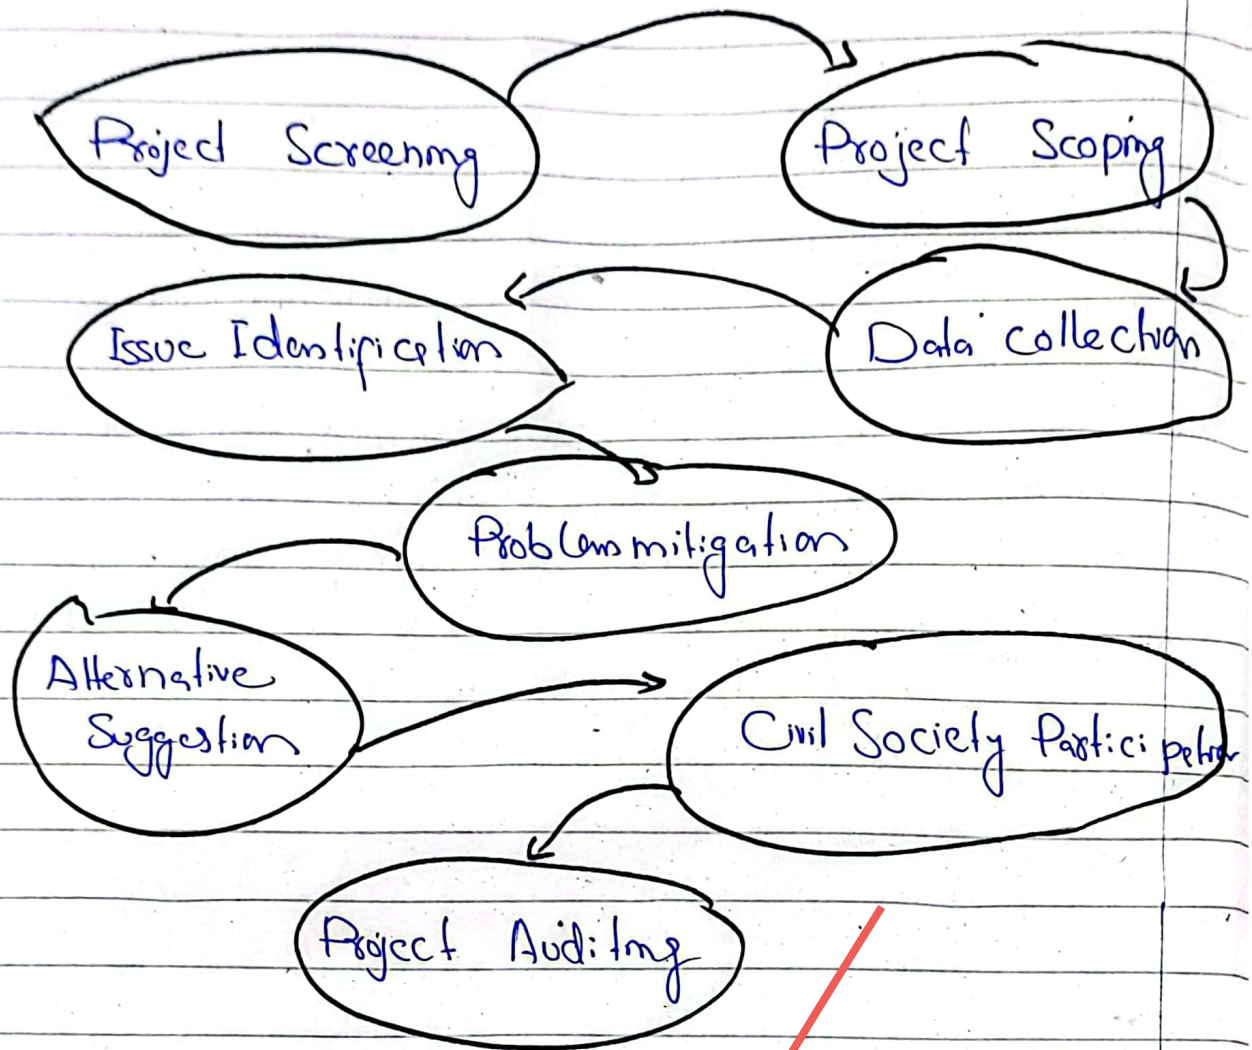 Project Screening
Project Scoping
Issue Identification
Data collection
Problem mitigation
Alternative
Suggestion
Civil Society Participation
Project Auditing